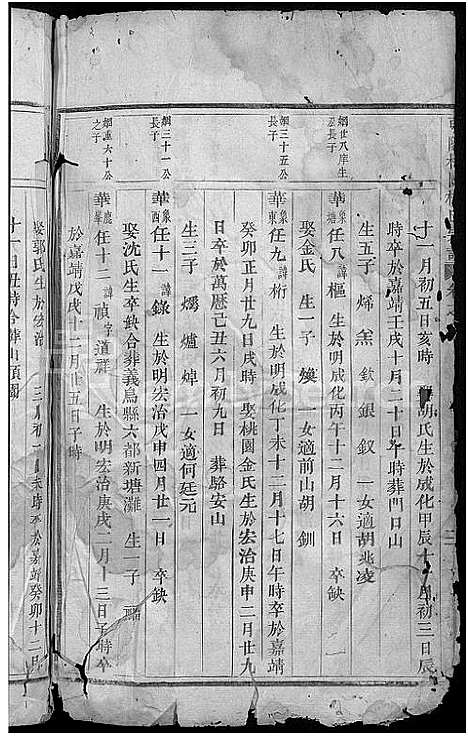 十一月初五日亥時 胡氏生於成化甲辰十一月初三日辰
時卒於嘉靖壬戌十月二十日午時葬門口山
生五子 烯 欽 銀 釵 一女適胡兆凌
綱廿八岸生
長子
華象東任八諱樞 生於明成化丙午十二月十六日 卒缺
娶金氏 生一子 煥 一女適前山胡 釧
綱三十五公
長子
華象東任九諱桁 生於明成化丁未十二月十七日午時卒於嘉靖
癸卯正月廿九日戌時 娶桃園金氏生於宏治庚申二月廿九
日卒於萬歷己丑六月初九日 葬駱安山
生三子 燭 爐 焯 一女適何廷元
綱三十一公
長子
華象西任十一諱錄 生於明宏治戊申四月廿一日 卒缺
娶沈氏生卒缺合葬義烏縣六都新塘灘 生一子
六十公
之子
華任十二諱禎字道祥 生於明宏治庚戌二月十三日子時卒
於嘉靖戊戌十二月廿五日子時
娶郭氏生於宏治 三月初一 未時卒於嘉靖癸卯十二月
十一日丑時合葬山頂園